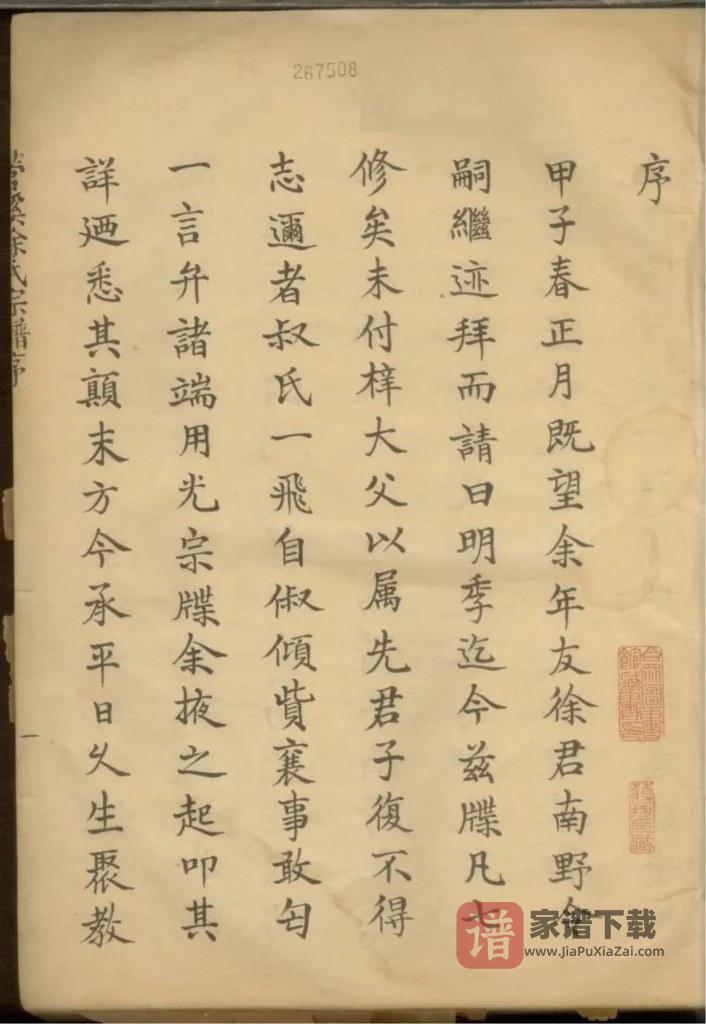 267508
序
甲子春正月既望余年友徐君南野令
嗣繼迹拜而請曰明季迄今茲牒凡七
修矣未付梓大父以属先君子復不得
志邇者叔氏一飛自俶傾貲襄事敢匄
一言弁諸端用光宗牒余掖之起叩其
詳廼悉其顛末方今承平日久生聚教
溪徐氏宗譜序
一
谱 家谱下载
www.JiaPuXiaZai.com